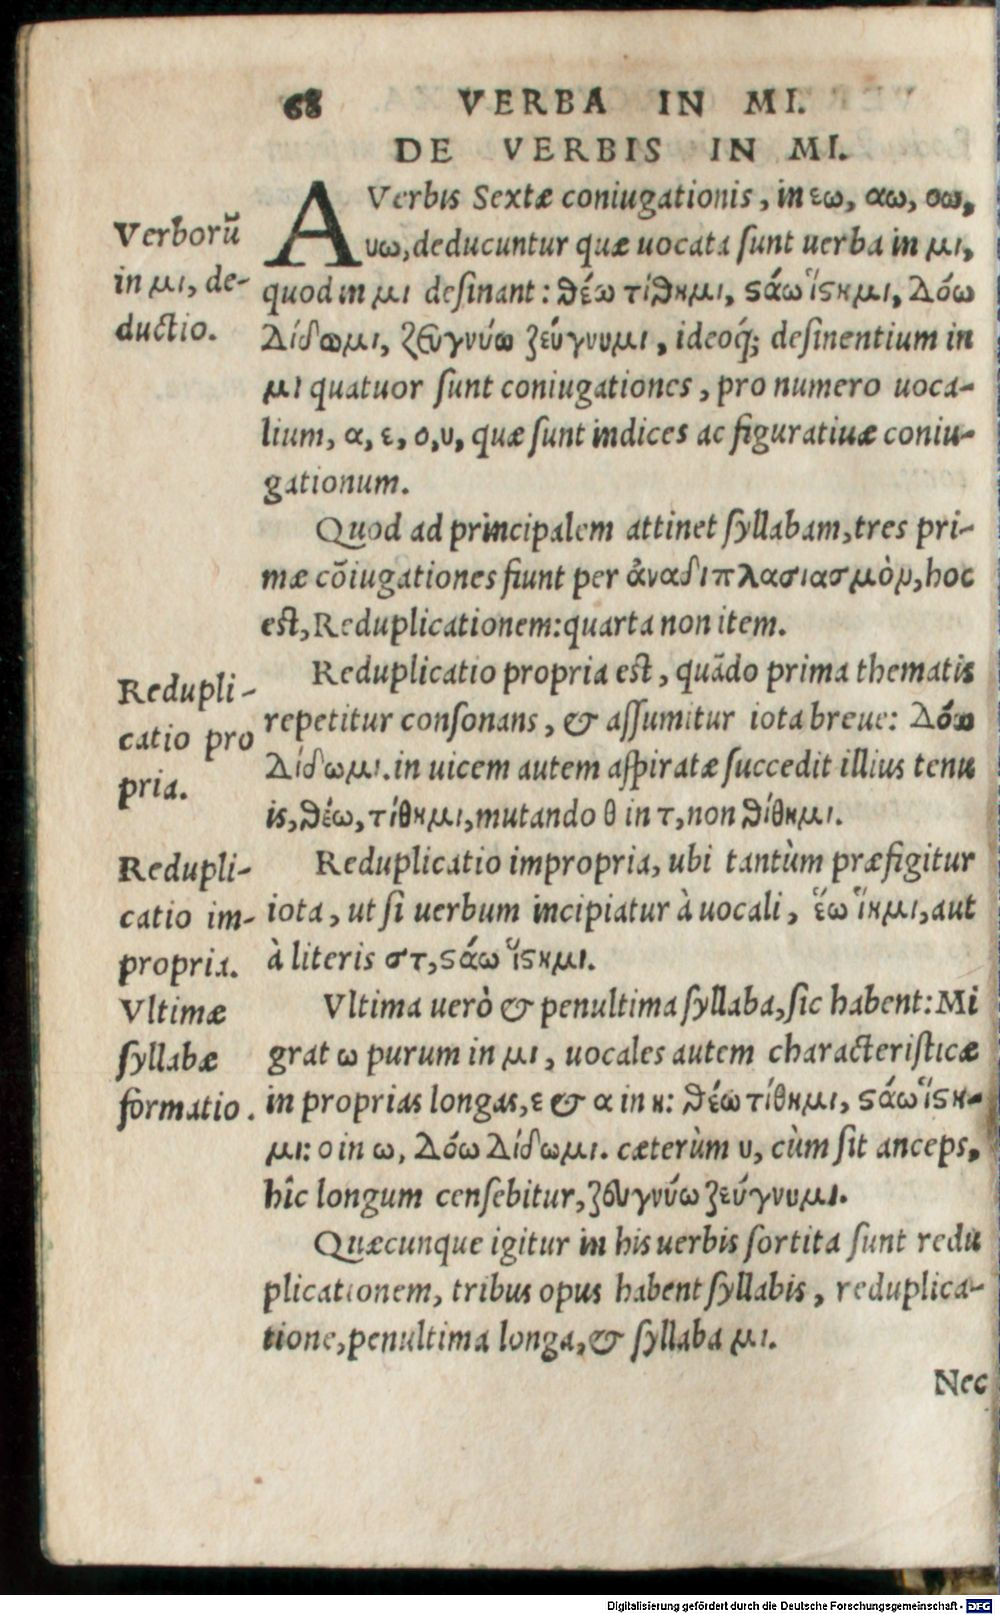 68 VERBA IN MI.
DE VERBIS IN MI.
A Verbis Sextæ coniugationis, in εω, αω, οω,
υω, deducuntur quæ uocata sunt uerba in μι,
quod in μι desinant: θέω τίθημι, ςάω ἵςημι, δόω
δίδωμι, ζευγνύω ζεύγνυμι, ideoq́; desinentium in
μι quatuor sunt coniugationes, pro numero uoca-
lium, α, ε, ο, υ, quæ sunt indices ac figuratiuæ coniu-
gationum.
Quod ad principalem attinet syllabam, tres pri-
mæ cōiugationes fiunt per ἀναδιπλασιασμὸν, hoc
est, Reduplicationem: quarta non item.
Reduplicatio propria est, quādo prima thematis
repetitur consonans, & assumitur iota breue: δόω
δίδωμι. in uicem autem aspiratæ succedit illius tenu
is, θέω, τίθημι, mutando θ in τ, non θίθημι.
Reduplicatio impropria, ubi tantùm præfigitur
iota, ut si uerbum incipiatur à uocali, ἕω ἵημι, aut
à literis στ, ςάω ἵςημι.
Vltima uerò & penultima syllaba, sic habent: Mi
grat ω purum in μι, uocales autem characteristicæ
in proprias longas, ε & α in η: θέω τίθημι, ςάω ἵςη-
μι: ο in ω, δόω δίδωμι. cæterùm υ, cùm sit anceps,
hîc longum censebitur, ζευγνύω ζεύγνυμι.
Quæcunque igitur in his uerbis sortita sunt redu
plicationem, tribus opus habent syllabis, reduplica-
tione, penultima longa, & syllaba μι.
Nec
Verborū
in μι, de-
ductio.
Redupli-
catio pro
pria.
Redupli-
catio im-
propria.
Vltimæ
syllabæ
formatio.
Digitalisierung gefördert durch die Deutsche Forschungsgemeinschaft - DFG